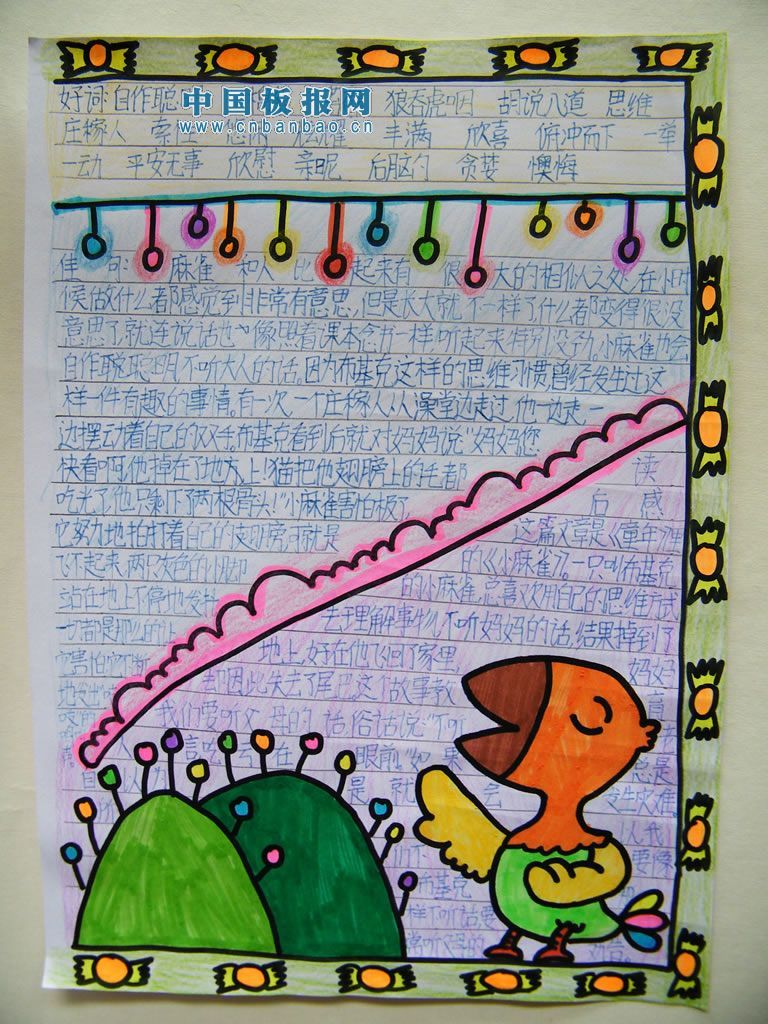 中国板报网
www.cnbanbao.cn
好词:自作聪 狼吞虎咽 胡说八道 思维
庄稼人 丰满 欣喜 俯冲而下 一举
一动 平安无事 欣慰 亲昵 后脑勺 贪婪 懊悔
佳句: 麻雀 和人比 起来有 很大的相似之处,在小时
候做什么都感觉到非常有意思,但是长大就不一样了什么都变得很没
意思了,就连说话也像照着课本念书一样听起来特别没劲。小麻雀也会
自作聪聪明,不听大人的话。因为布基克这样的思维习惯曾经发生过这
样一件有趣的事情。有一次,一个庄稼人从澡堂边走过,他一边走一
边摆动着自己的双手。布基克看到后就对妈妈说:"妈妈您
快看啊,他掉在了地方上!猫把他翅膀上的毛都
吃光了,他只剩下了两根骨头!"小麻雀害怕极了
它努力地拍打着自己的翅膀,可就是
飞不起来,两只灰色的小脚
站在地上不停地发抖
读
后感
这篇文章是《童年》
的《小麻雀》。一只叫布基克
的小麻雀,总喜欢用自己的思维方式
去理解事物,不听妈妈的话,结果掉到了
地上,好在他飞回了家里 妈妈
却因此失去了尾巴这个故事教
我们要听父母的话,俗话说"不听
言,吃亏在 眼前"如果 总是
自以为 是 就 会 发生灾难。
所 以我
们不 要像
布基克
样不听话要
常听父母的 劝告。